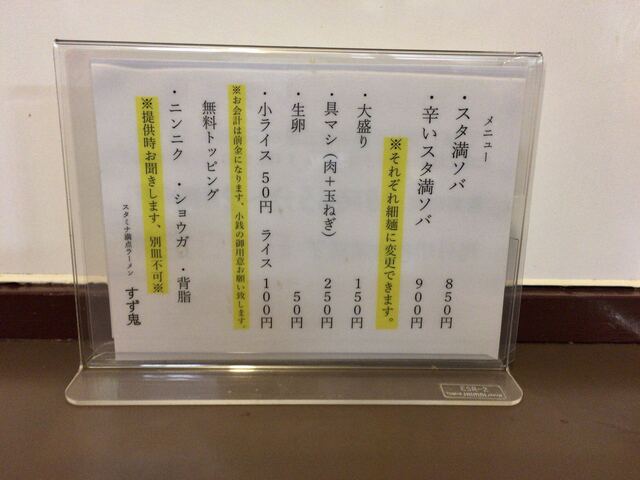 メニュー
・スタ満ソバ 850円
・辛いスタ満ソバ 900円
※それぞれ細麺に変更できます。
・大盛り 150円
・具マシ（肉＋玉ねぎ） 250円
・生卵 50円
・小ライス 50円 ライス 100円
※お会計は前金になります、小銭の御用意お願い致します。
無料トッピング
・ニンニク ・ショウガ ・背脂
※提供時お聞きします、別皿不可※
スタミナ満点ラーメン すず鬼
ESR-2